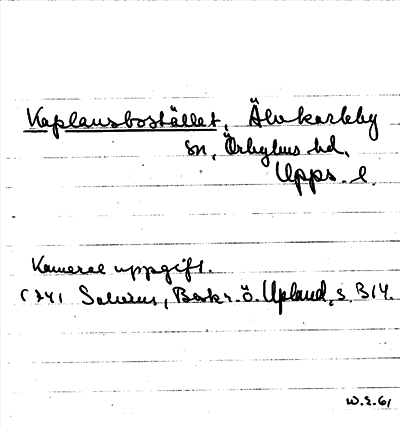 Kaplansbostället, Älvkarleby
sn, Örbyhus hd,
Upps. l.
Kameral uppgift.
1741 Salvius, Beskr. ö. Upland, s. 314.
W.E. 61